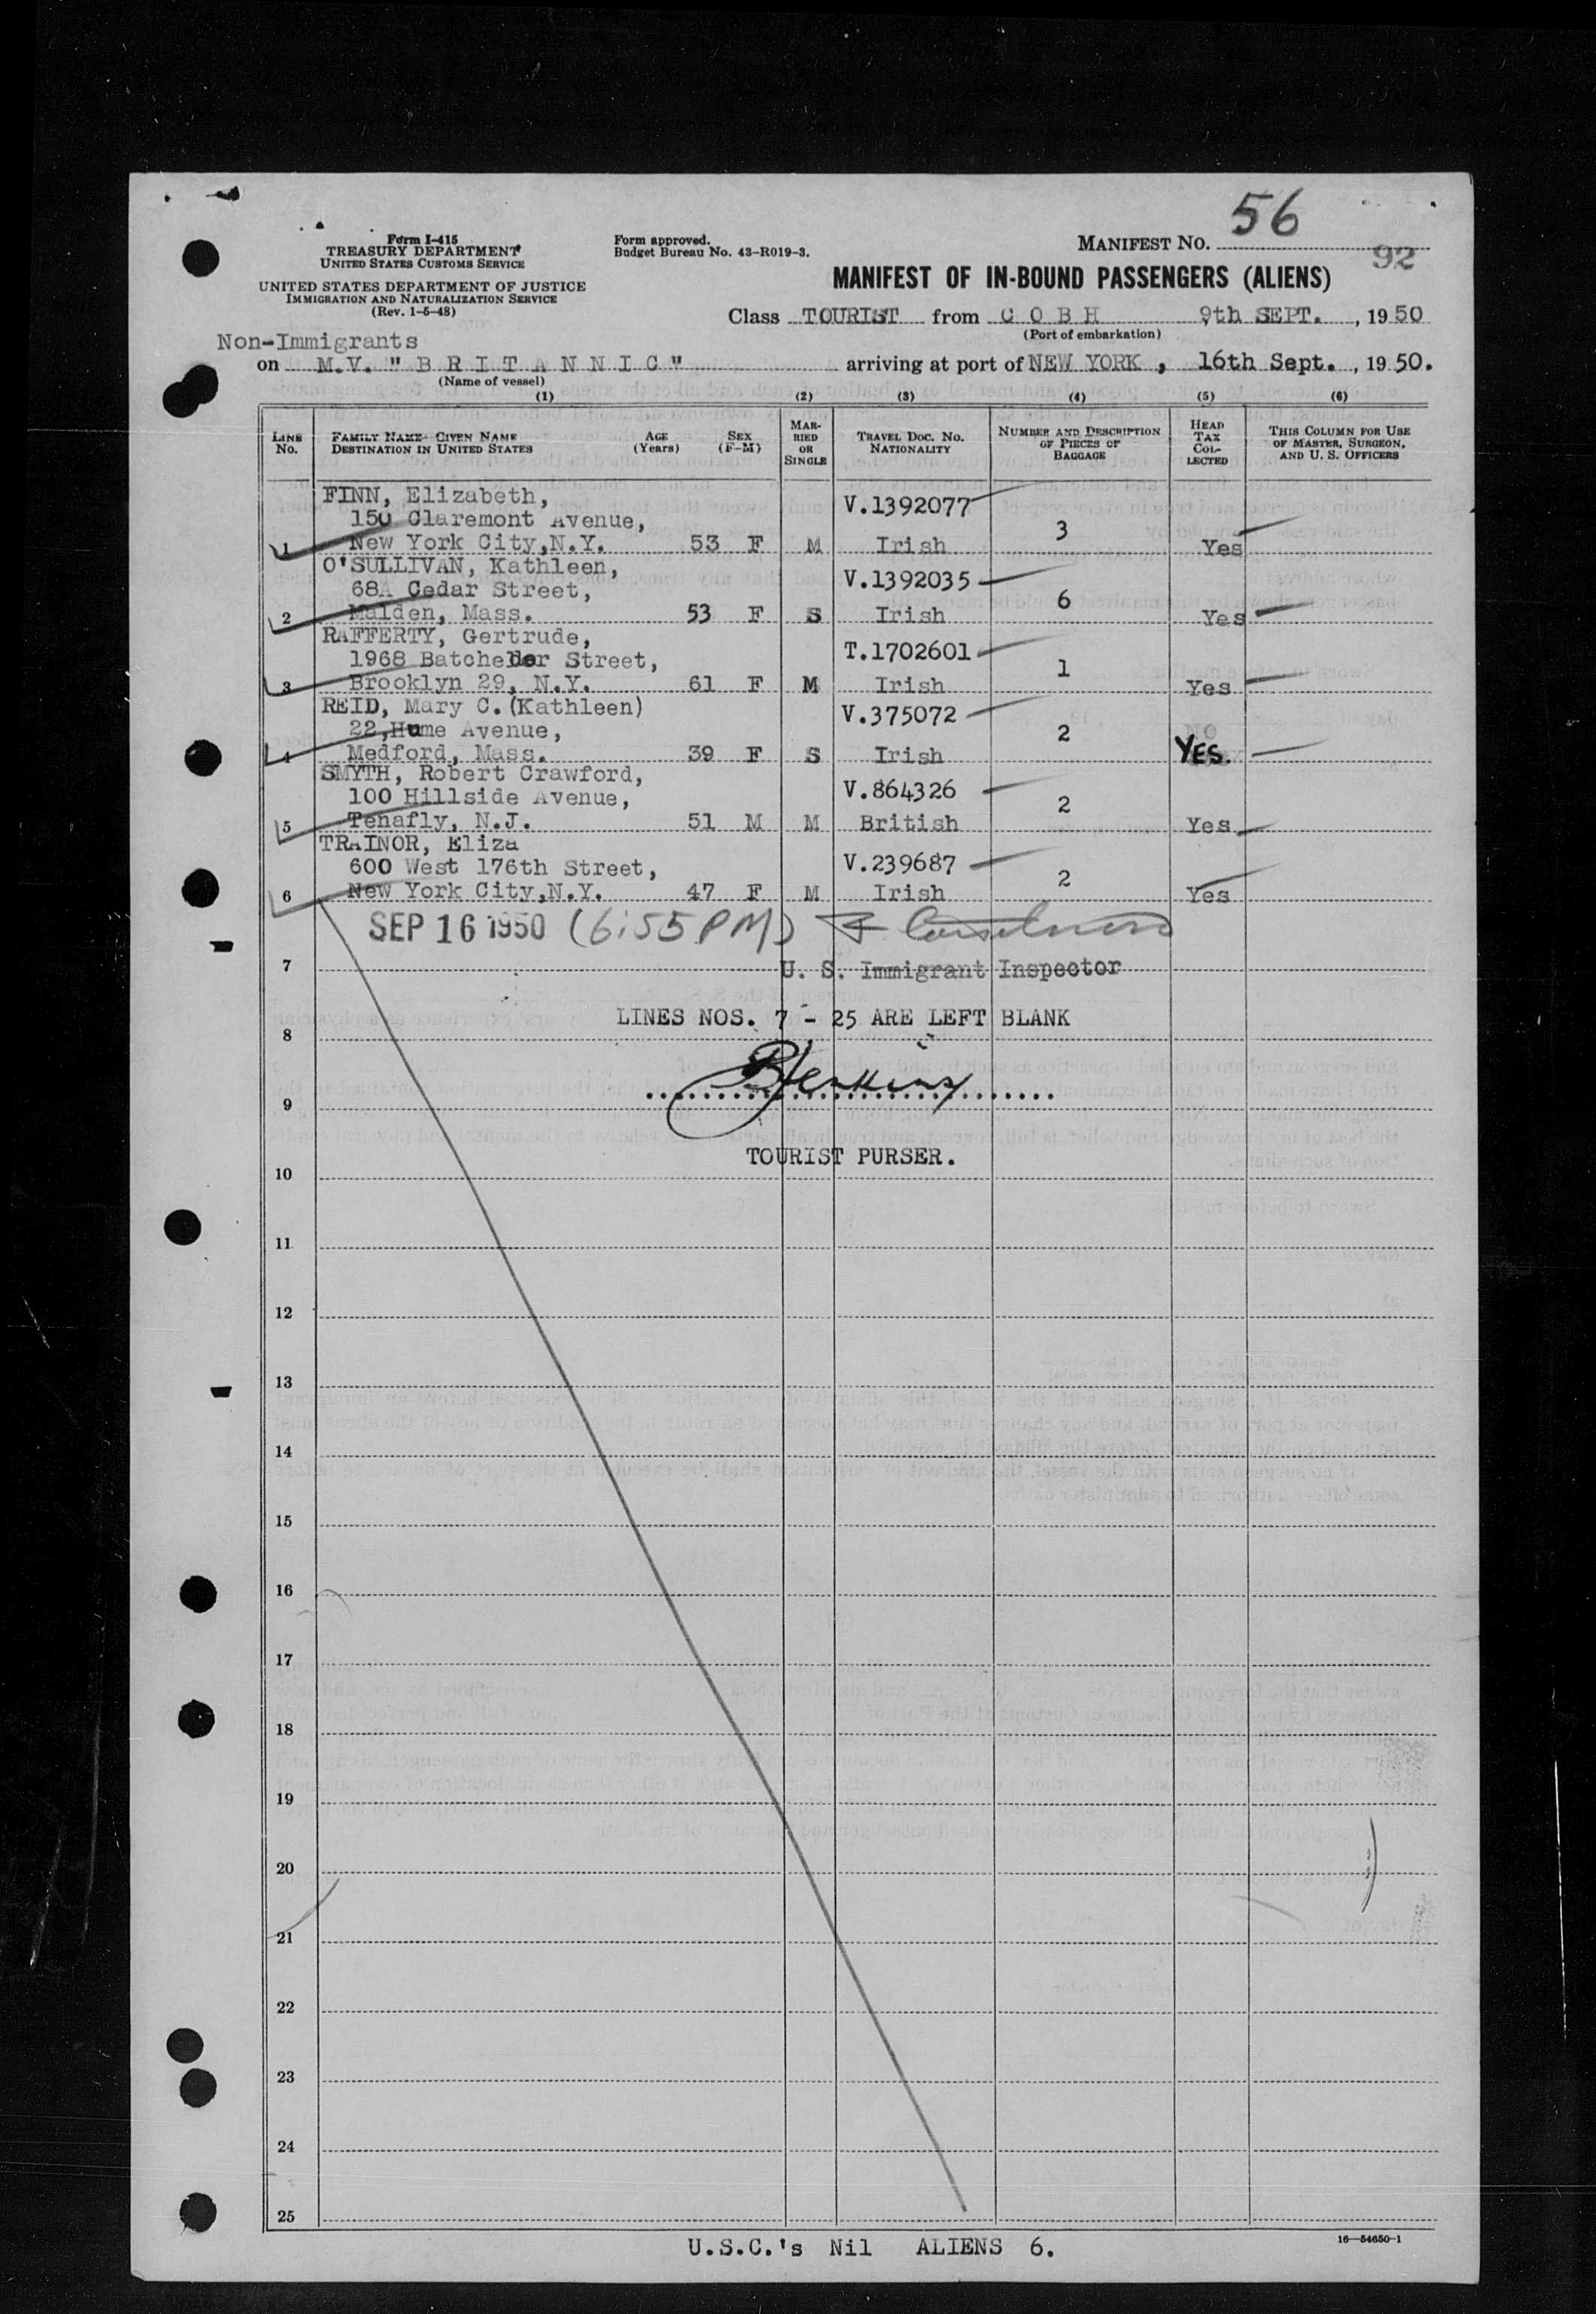 56
Form I-415
TREASURY DEPARTMENT
UNITED STATES CUSTOMS SERVICE
UNITED STATES DEPARTMENT OF JUSTICE
IMMIGRATION AND NATURALIZATION SERVICE
(Rev. 1-5-48)
Form approved.
Budget Bureau No. 43-R019-3.
MANIFEST NO.
92
MANIFEST OF IN-BOUND PASSENGERS (ALIENS)
Class TOURIST from COBH 9th SEPT., 1950
(Port of embarkation)
Non-Immigrants
on M.V. "BRITANNIC" arriving at port of NEW YORK, 16th Sept., 1950.
(Name of vessel)
(1) (2) (3) (4) (5) (6)
LINE NO. FAMILY NAME—GIVEN NAME DESTINATION IN UNITED STATES AGE (Years) SEX (F-M) MARRIED OR SINGLE TRAVEL DOC. NO. NATIONALITY NUMBER AND DESCRIPTION OF PIECES OF BAGGAGE HEAD TAX COLLECTED THIS COLUMN FOR USE OF MASTER, SURGEON, AND U. S. OFFICERS
FINN, Elizabeth, V.1392077
150 Claremont Avenue, 3
1 New York City,N.Y. 53 F M Irish Yes
O'SULLIVAN, Kathleen, V.1392035
68A Cedar Street, 6
2 Malden, Mass. 53 F S Irish Yes
RAFFERTY, Gertrude, T.1702601
1968 Batchelder Street, 1
3 Brooklyn 29, N.Y. 61 F M Irish Yes
REID, Mary C.(Kathleen) V.375072
22,Hume Avenue, 2
4 Medford, Mass. 39 F S Irish YES.
SMYTH, Robert Crawford, V.864326
100 Hillside Avenue, 2
5 Tenafly, N.J. 51 M M British Yes
TRAINOR, Eliza V.239687
600 West 176th Street, 2
6 New York City,N.Y. 47 F M Irish Yes
SEP 16 1950 (6:55 PM)
7 U. S. Immigrant Inspector
LINES NOS. 7 - 25 ARE LEFT BLANK
8
Jenkins
9
TOURIST PURSER.
10
11
12
13
14
15
16
17
18
19
20
21
22
23
24
25
U.S.C.'s Nil ALIENS 6.
16—54650-1